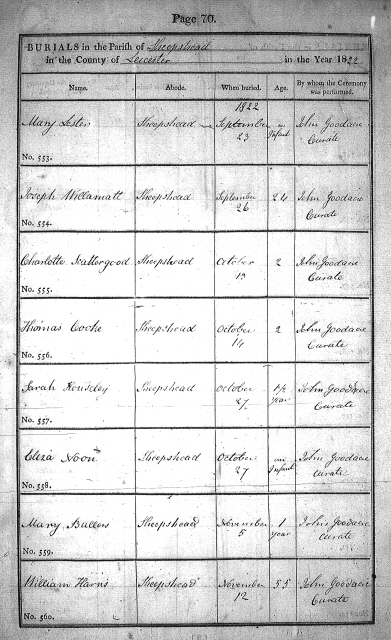 Page 70.
BURIALS in the Parish of Sheepshead
in the County of Leicester in the Year 1822
Name. Abode. When buried. Age. By whom the Ceremony was performed.
1822
Mary Lester Sheepshead September 23 an Infant John Goodacre Curate
No. 553.
Joseph Willamatt Sheepshead September 26 24 John Goodacre Curate
No. 554.
Charlotte Hattergood Sheepshead October 13 2 John Goodacre Curate
No. 555.
Thomas Cocke Sheepshead October 14 2 John Goodacre Curate
No. 556.
Sarah Sheepshead October 27 year John Goodacre Curate
No. 557.
Eliza Noon Sheepshead October 27 an Infant John Goodacre Curate
No. 558.
Mary Bullers Sheepshead November 5 1 year John Goodacre Curate
No. 559.
William Harris Sheepshead November 12 55 John Goodacre Curate
No. 560.